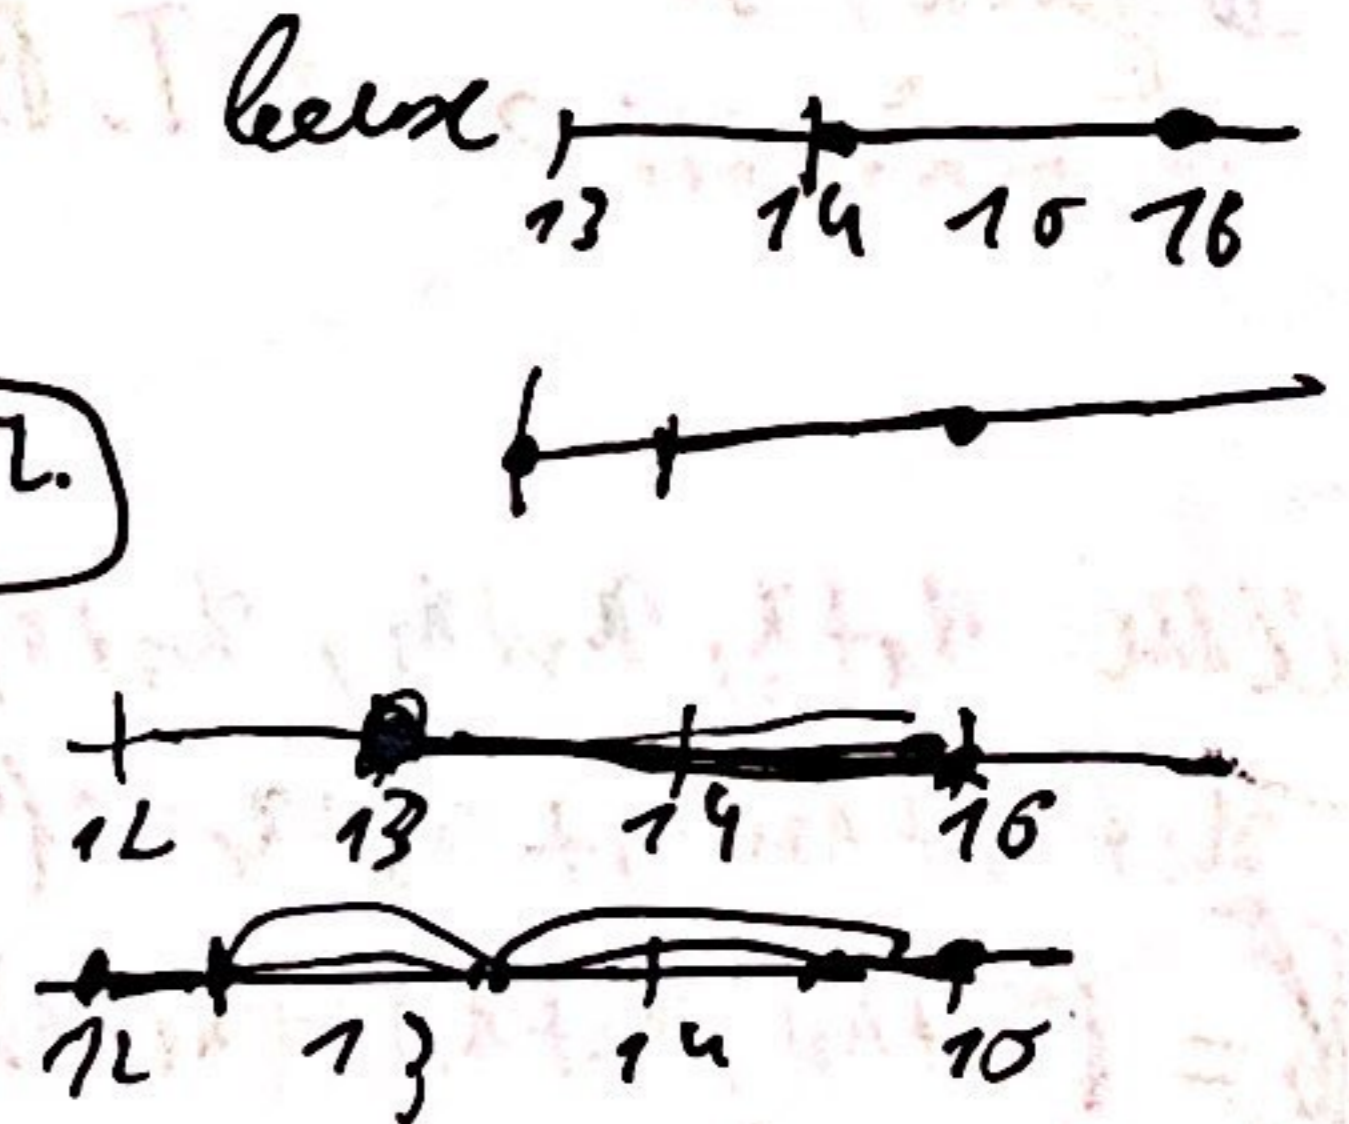 13 14 15 16
2.
12 13 14 16
12 13 14 15